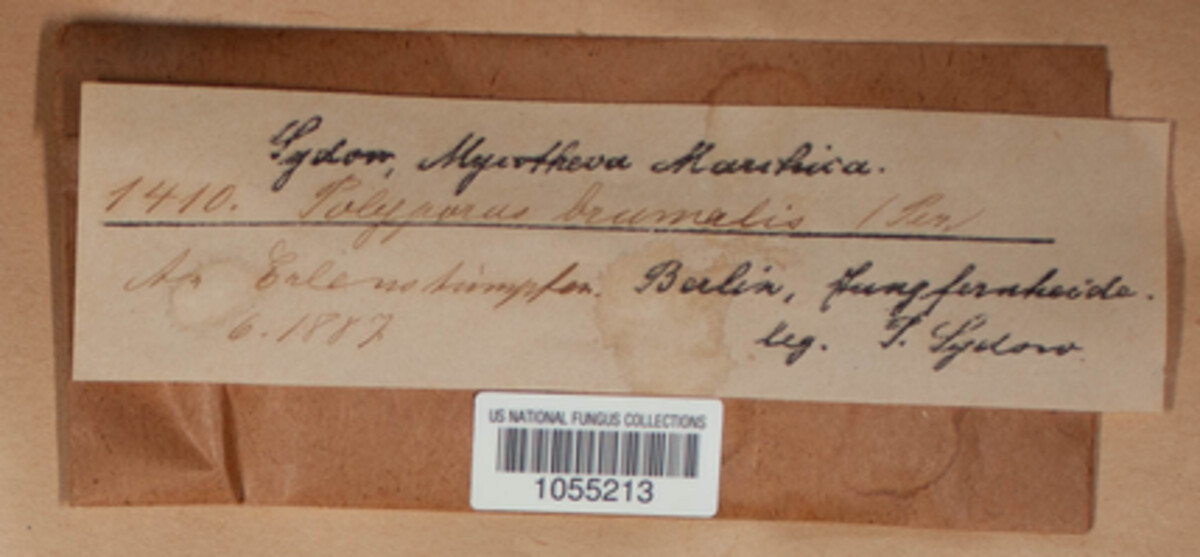 Sydow, Mycotheca Marchica.
1410. Polyporus brumalis (Pers.
An Erlenstümpfen. Berlin, Jungfernheide.
6. 1887 leg. P. Sydow
US NATIONAL FUNGUS COLLECTIONS
1055213